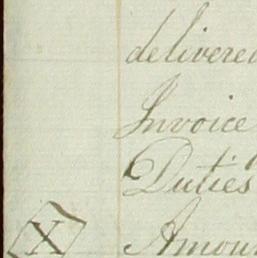 delivered
Invoice
Duties
X Amoun